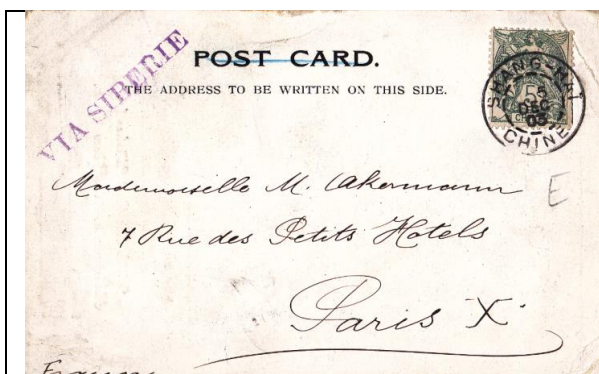 VIA SIBERIE
POST CARD.
THE ADDRESS TO BE WRITTEN ON THIS SIDE.
SHANG-HAI
5
DEC
03
CHINE
5
Mademoiselle M. Akermann
E
7 Rue des Petits Hotels
Paris X